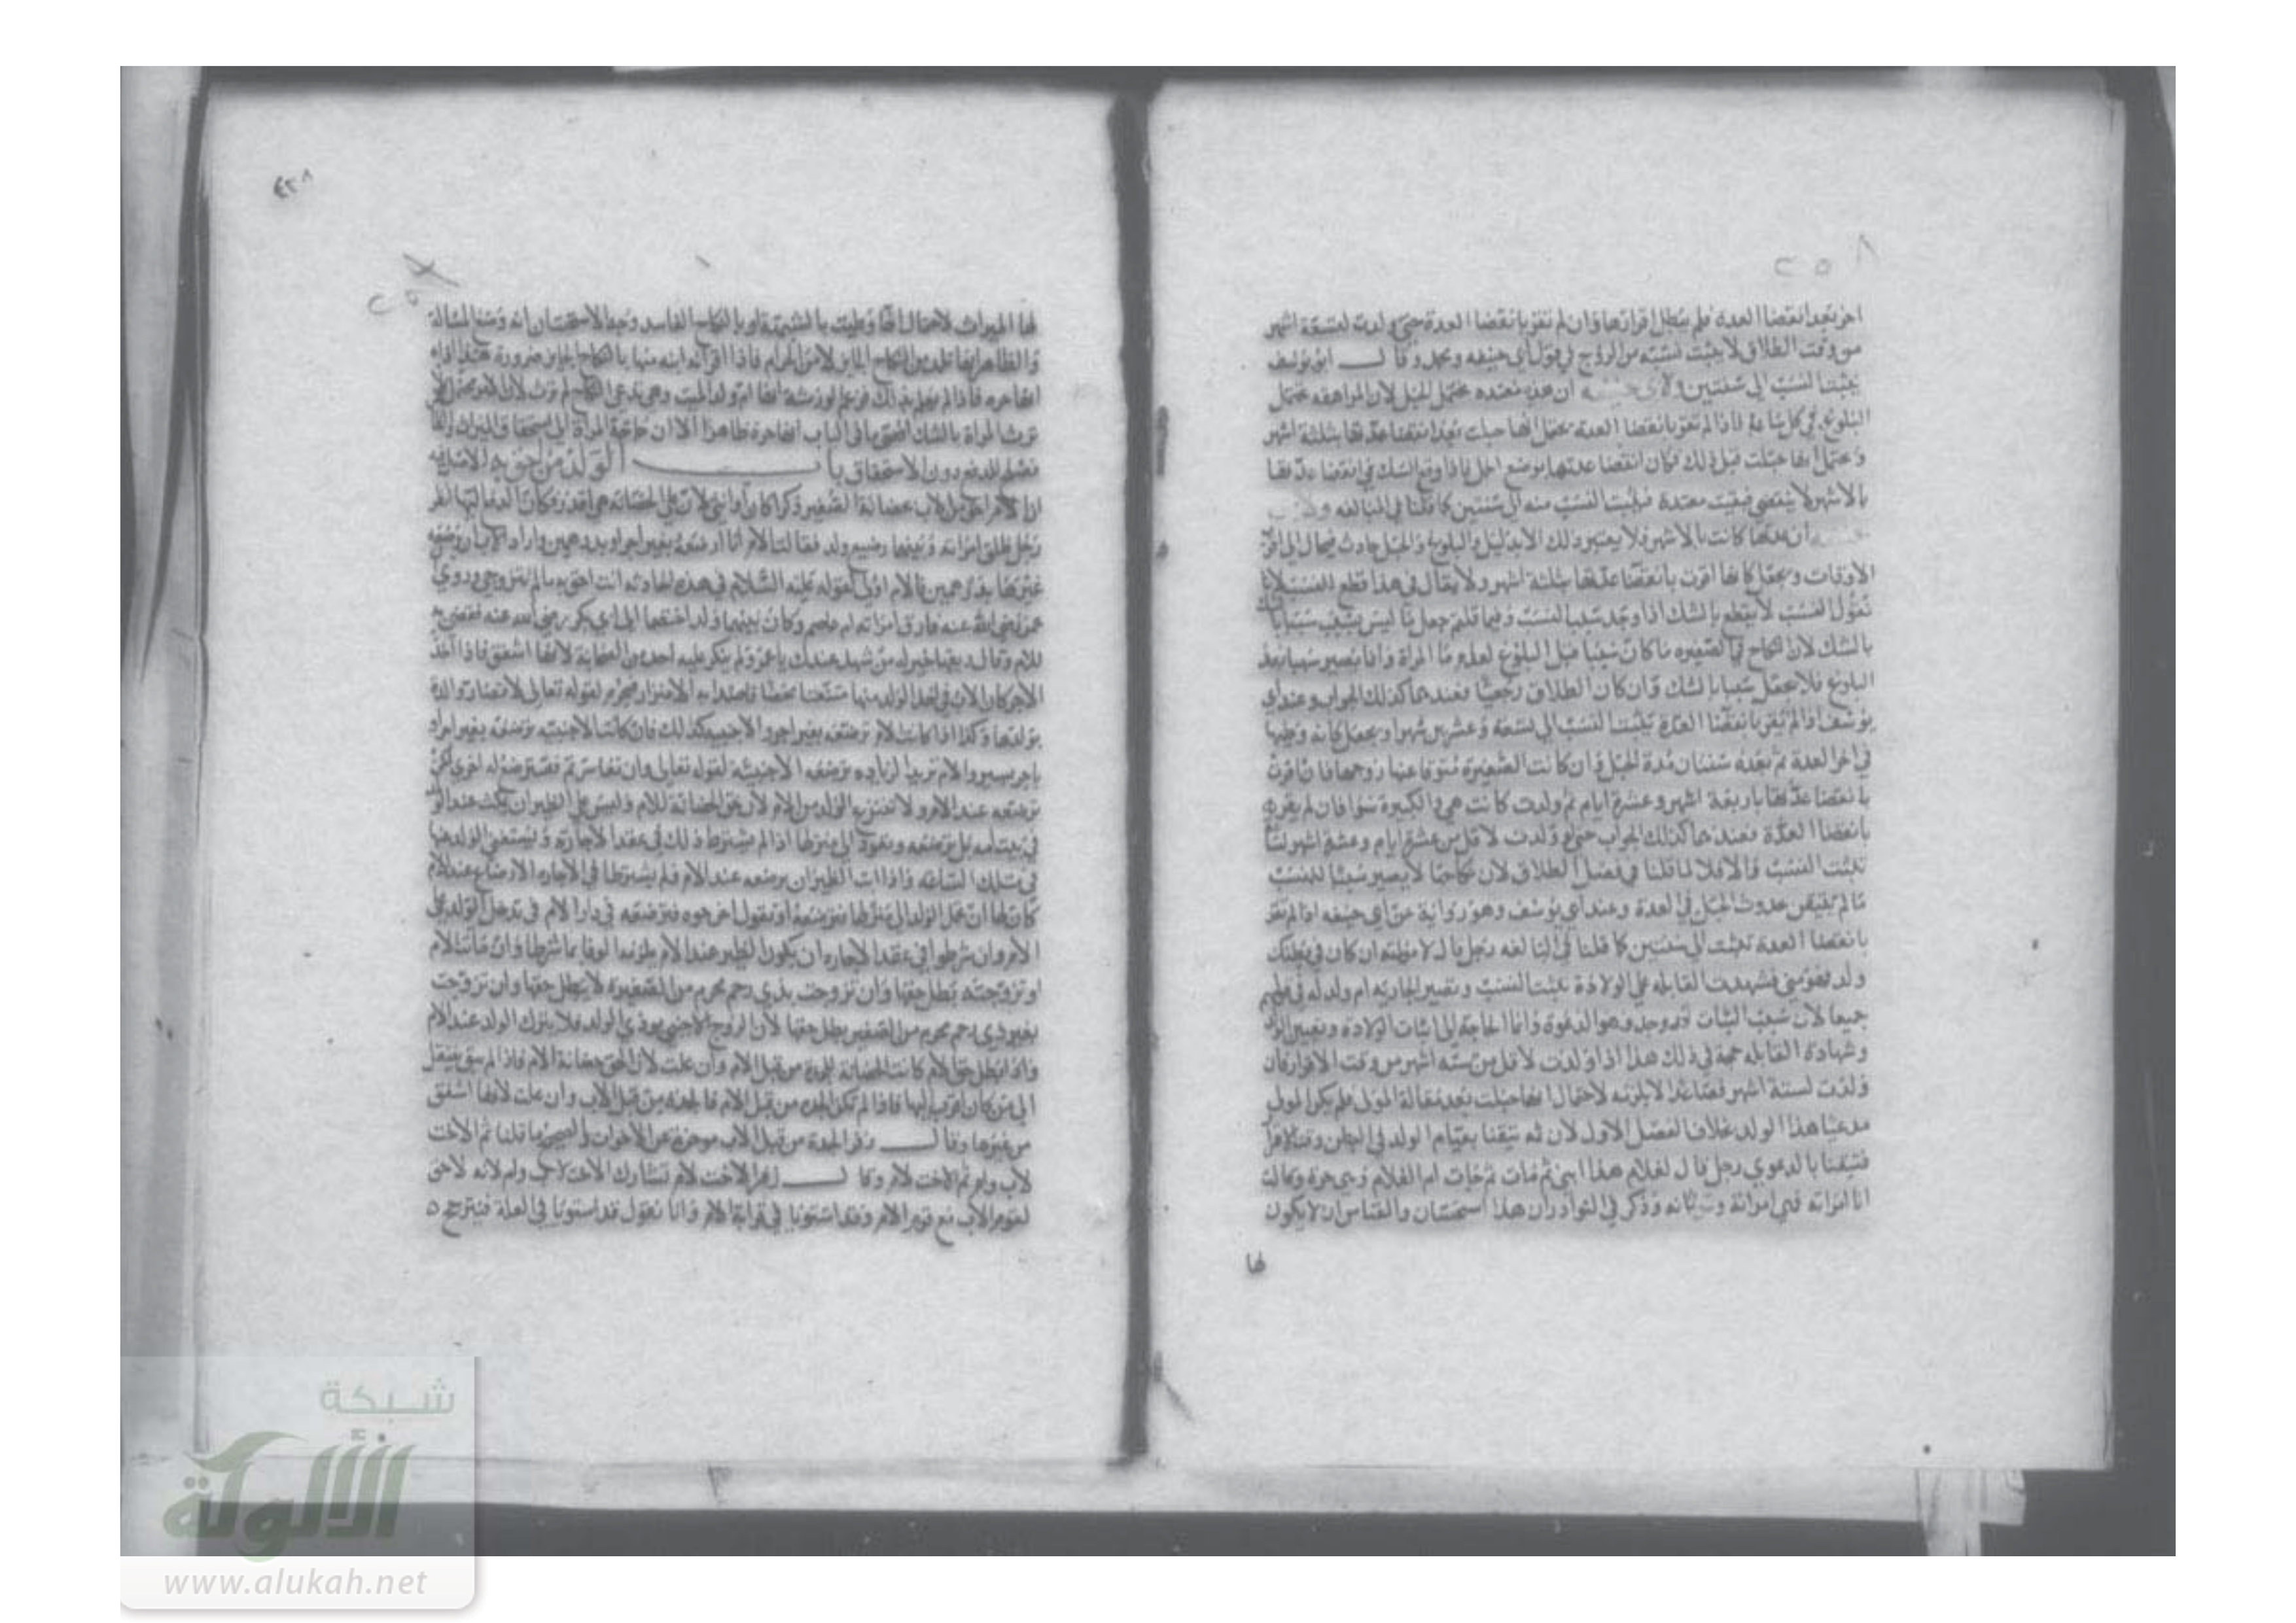 ٢٥٨
اخر بعد انقضا العدة فلم يبطل اقرارها وان لم تقر بانقضا العدة حتى ولدت لتسعة اشهر
من وقت الطلاق لا يثبت نسبه من الزوج في قول ابي حنيفه ومحمد وقال ابو يوسف
يثبت النسب الى سنتين ولابي حنيفة ان هذه معتده تحتمل الحبل لان المراهقه تحتمل
البلوغ في كل ساعة فاذا لم تقر بانقضا العدة يحتمل انها حبلت بعد انقضا عدتها بثلثة اشهر
ويحتمل انها حبلت قبل ذلك فكان انقضا عدتها بوضع الحمل فاذا وقع الشك في انقضا عدتها
بالاشهر لا ينقضي فبقيت معتدة فيثبت النسب منه الى سنتين كما قلنا في البالغه
ان عدتها كانت بالاشهر فلا يعتبر ذلك الا بدليل البلوغ والحبل حادث فيحال الى اقرب
الاوقات ويجعل كانها اقرت بانقضا عدتها بثلثة اشهر ولا يقال في هذا قطع للنسب لانا
نقول النسب لا يقطع بالشك اذا وجد سبب النسب وفيما قلتم جعل ما ليس بسبب سببا
بالشك لان النكاح في الصغيره ما كان سببا قبل البلوغ لعدم ما المرأة وانما يصير سببا بعد
البلوغ فلا يجعل سببا بالشك وان كان الطلاق رجعيا فعندهما كذلك الجواب وعند ابي
يوسف اذا لم تقر بانقضا العدة يثبت النسب الى سبعة وعشرين شهرا ويجعل كانه وطيها
في اخر العدة ثم بعده سنتان مدة الحبل وان كانت الصغيرة متوفا عنها زوجها فاقرت
بانقضا عدتها باربعة اشهر وعشرة ايام ثم ولدت كانت هي والكبيرة سوا فان لم تقر
بانقضا العدة فعندهما كذلك الجواب حتى لو ولدت لاقل من عشرة ايام وعشرة اشهر
يثبت النسب والا فلا لما قلنا في فصل الطلاق لان نكاحها لا يصير سببا للنسب
ما لم يتيقن بحدوث الحبل في العدة وعند ابي يوسف وهو رواية عن ابي حنيفه اذا لم تقر
بانقضا العدة يثبت الى سنتين كما قلنا في البالغه رجل قال لامته ان كان في بطنك
ولد فهو مني فشهدت القابله على الولادة يثبت النسب وتصير الجاريه ام ولد له في قولهم
جميعا لان سبب الثبات قد وجد وهو الدعوة وانما الحاجة الى اثبات الولادة وتعيين الولد
وشهادة القابله حجة في ذلك هذا اذا ولدت لاقل من ستة اشهر من وقت الاقرار فان
ولدت لستة اشهر فصاعدا لا يلزمه لاحتمال انها حبلت بعد مقالة المولى فلم يكن المولى
مدعيا هذا الولد بخلاف الفصل الاول لان ثمه تيقنا بقيام الولد في البطن وقت
فتيقنا بالدعوي رجل قال لغلام هذا ابني ثم مات ثم جات ام الغلام وهي حرة وقالت
انا امراته فهي امراته ويرثانه وذكر في النوادر ان هذا استحسان والقياس ان لا يكون
لها
٤٣٨
٢٥٩
لها الميراث لاحتمال انها وطيت بالشبهة او بالنكاح الفاسد وجه الاستحسان انه وضع المسالة
والظاهر انها تلد من النكاح الجايز لا من الحرام فاذا اقر انه ابنه منها بالنكاح الجايز ضرورة
انها حره فاذا لم يعلم ذلك فزعم الورثة انها ام ولد الميت وهي تدعي النكاح لم ترث لانا
ترث المراة بالشك اقصى ما في الباب انها حرة ظاهرا الا ان حاجة المراة الى استحقاق الميراث
تصلح للدفع دون الاستحقاق باب الولد من احق به الاشارة
ان الام احق من الاب بحضانة الصغير ذكرا كان او انثى لان على الحضانه هي اقدر
رجل طلق امراته وبينهما رضيع ولد فقالت الام انا ارضعه بغير اجر او بدرهمين واراد الاب ان يرضعه
غيرها بدرهمين فالام اولى لقوله عليه السلام في هذه الحادثه انت احق به ما لم تتزوجي وروي
عمر رضي الله عنه فارق امراته ام عاصم وكان بينهما ولد اختصما الى ابي بكر رضي الله عنه فقضى به
للام وقال ريقها خير له من شهد عندك يا عمر ولم ينكر عليه احد من الصحابة لانها اشفق فاذا اخذ
الاجر كان الاب في اخذ الولد منها الاضرار محرم لقوله تعالى لا تضار والدة
بولدها وكذا اذا كانت الام ترضعه بغير اجر والاجنبيه كذلك فان كانت الاجنبيه ترضعه بغير اجر او
باجر يسير والام تريد الزياده ترضعه الاجنبية لقوله تعالى وان تعاسرتم فسترضع له اخرى لكن
ترضعه عند الام ولا تنتزع الولد من الام لان حق الحضانة للام وليس على الظير ان تمكث عند الولد
في بيت امه بل ترضعه وتعود الى منزلها اذا لم يشترط ذلك في عقد الاجارة ويستغني الولد عنها
في تلك الساعه واذا ابت الظير ان ترضعه عند الام فلم يشترط في الاجاره الارضاع عند الام
كان لها ان تحمل الولد الى منزلها فترضعه او تقول اخرجوه فترضعه في دار الام ثم تدخل الولد على
الام وان شرطوا في عقد الاجاره ان يكون الظير عند الام يلزمها الوفا بما شرطوا وان ماتت الام
او تزوجت بطل حقها وان تزوجت بذي رحم محرم من الصغير لا يبطل حقها وان تزوجت
بغير ذي رحم محرم من الصغير يبطل حقها لان الزوج الاجنبي يوذي الولد فلا يترك الولد عند الام
واذا بطل حق الام كانت الحضانة للجدة من قبل الام وان علت لان الحق حضانة الام فاذا لم يبق ينتقل
الى من كان اقرب اليها فاذا لم تكن الجدة من قبل الام فالجدة من قبل الاب وان علت لانها اشفق
من غيرها وقال زفر الجدة من قبل الاب موخرة عن الاخوات والصحيح ما قلنا ثم الاخت
لاب وام ثم الاخت لام وقال زفر الاخت لام تشارك الاخت لاب وام لانه لا حق
لقوم الاب مع قوم الام وقد استويا في قرابة الام وانا نقول قد استويا في العلة فيترجح
شبكة
الألوكة
www.alukah.net